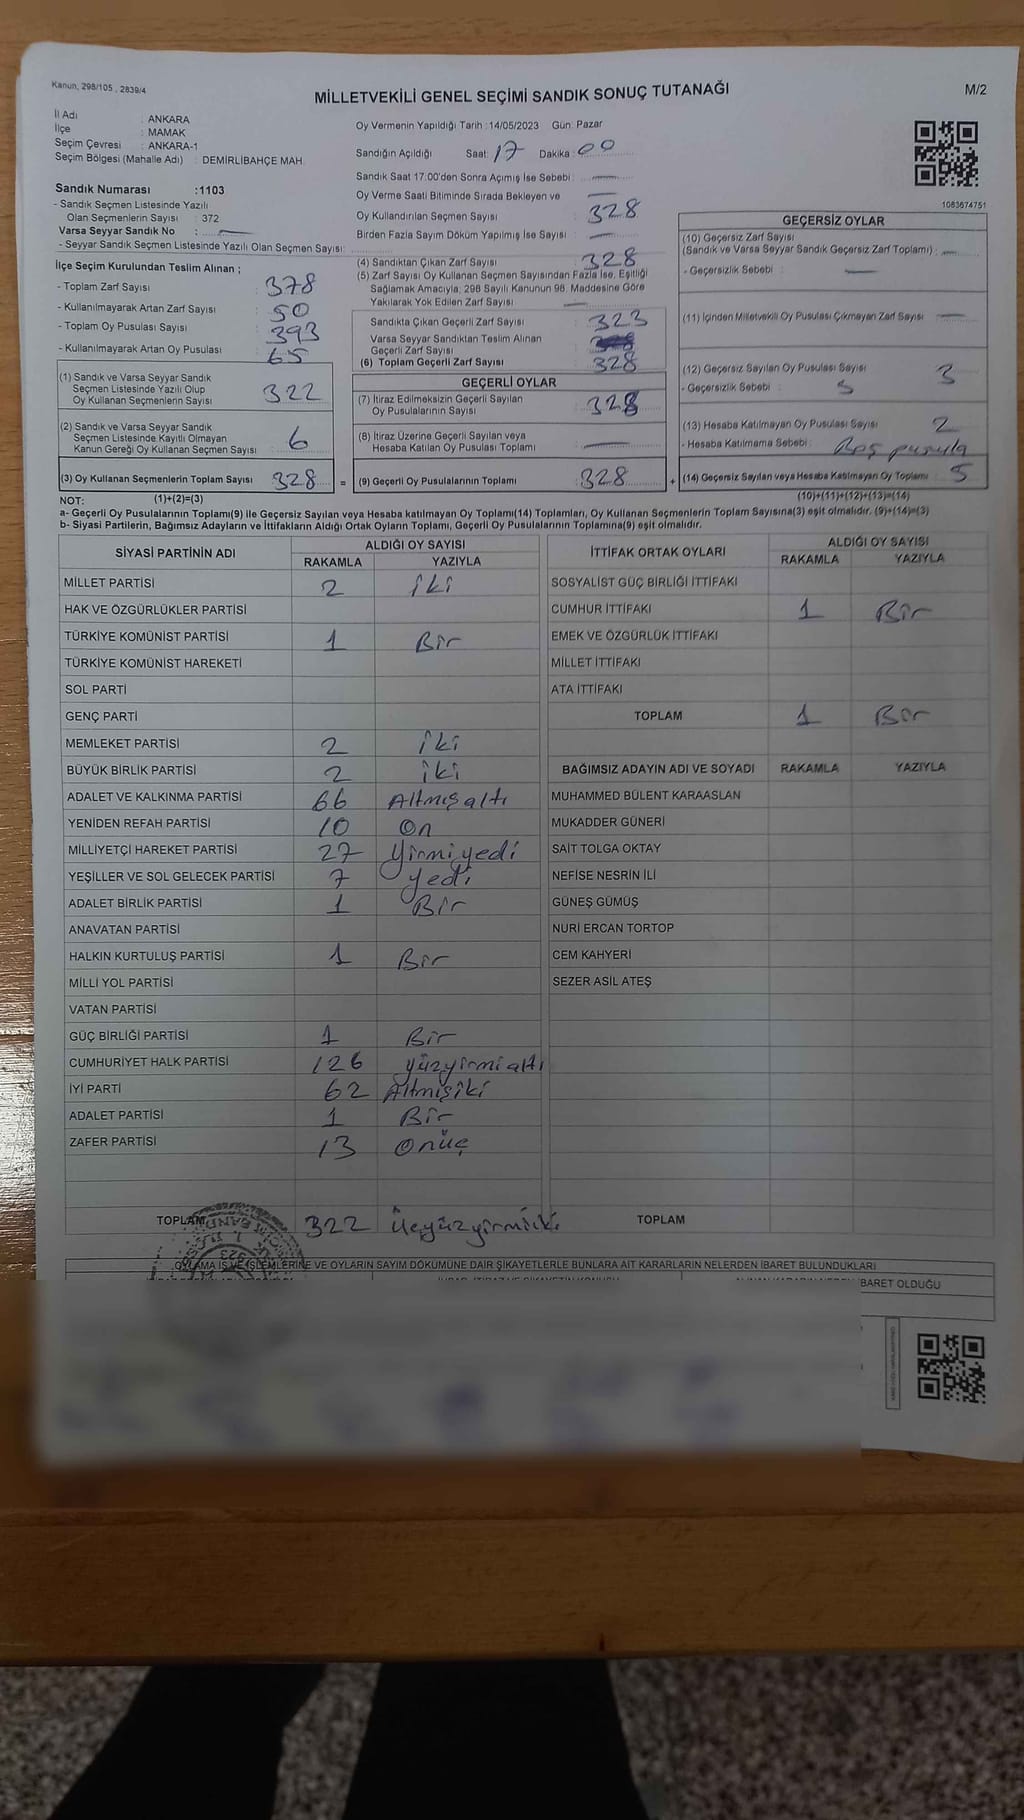 Kanun, 298/105 , 2839/4
MİLLETVEKİLİ GENEL SEÇİMİ SANDIK SONUÇ TUTANAĞI
M/2
İl Adı : ANKARA
İlçe : MAMAK
Seçim Çevresi : ANKARA-1
Seçim Bölgesi (Mahalle Adı) : DEMİRLİBAHÇE MAH.
Sandık Numarası :1103
- Sandık Seçmen Listesinde Yazılı
Olan Seçmenlerin Sayısı : 372
Varsa Seyyar Sandık No : —
- Seyyar Sandık Seçmen Listesinde Yazılı Olan Seçmen Sayısı:
İlçe Seçim Kurulundan Teslim Alınan ;
- Toplam Zarf Sayısı : 378
- Kullanılmayarak Artan Zarf Sayısı : 50
- Toplam Oy Pusulası Sayısı : 393
- Kullanılmayarak Artan Oy Pusulası : 65
(1) Sandık ve Varsa Seyyar Sandık
Seçmen Listesinde Yazılı Olup
Oy Kullanan Seçmenlerin Sayısı : 322
(2) Sandık ve Varsa Seyyar Sandık
Seçmen Listesinde Kayıtlı Olmayan
Kanun Gereği Oy Kullanan Seçmen Sayısı : 6
(3) Oy Kullanan Seçmenlerin Toplam Sayısı 328 =
Oy Vermenin Yapıldığı Tarih :14/05/2023 Gün: Pazar
Sandığın Açıldığı Saat: 17 Dakika : 00
Sandık Saat 17.00'den Sonra Açımış İse Sebebi : —
Oy Verme Saati Bitiminde Sırada Bekleyen ve —
Oy Kullandırılan Seçmen Sayısı : 328
Birden Fazla Sayım Döküm Yapılmış İse Sayısı : —
(4) Sandıktan Çıkan Zarf Sayısı : 328
(5) Zarf Sayısı Oy Kullanan Seçmen Sayısından Fazla İse, Eşitliği
Sağlamak Amacıyla; 298 Sayılı Kanunun 98. Maddesine Göre
Yakılarak Yok Edilen Zarf Sayısı : —
Sandıkta Çıkan Geçerli Zarf Sayısı : 323
Varsa Seyyar Sandıktan Teslim Alınan
Geçerli Zarf Sayısı :
(6) Toplam Geçerli Zarf Sayısı : 328
GEÇERLİ OYLAR
(7) İtiraz Edilmeksizin Geçerli Sayılan
Oy Pusulalarının Sayısı : 328
(8) İtiraz Üzerine Geçerli Sayılan veya
Hesaba Katılan Oy Pusulalarının Toplamı : —
(9) Geçerli Oy Pusulalarının Toplamı : 328 +
1083674751
GEÇERSİZ OYLAR
(10) Geçersiz Zarf Sayısı
(Sandık ve Varsa Seyyar Sandık Geçersiz Zarf Toplamı) : —
- Geçersizlik Sebebi : —
(11) İçinden Milletvekili Oy Pusulası Çıkmayan Zarf Sayısı : —
(12) Geçersiz Sayılan Oy Pusulası Sayısı : 3
- Geçersizlik Sebebi :
(13) Hesaba Katılmayan Oy Pusulası Sayısı : 2
- Hesaba Katılmama Sebebi : Boş pusula
(14) Geçersiz Sayılan veya Hesaba Katılmayan Oy Toplamı : 5
NOT: (1)+(2)=(3) (10)+(11)+(12)+(13)=(14)
a- Geçerli Oy Pusulalarının Toplamı(9) ile Geçersiz Sayılan veya Hesaba katılmayan Oy Toplamı(14) Toplamları, Oy Kullanan Seçmenlerin Toplam Sayısına(3) eşit olmalıdır. (9)+(14)=(3)
b- Siyasi Partilerin, Bağımsız Adayların ve İttifakların Aldığı Ortak Oyların Toplamı, Geçerli Oy Pusulalarının Toplamına(9) eşit olmalıdır.
SİYASİ PARTİNİN ADI ALDIĞI OY SAYISI
RAKAMLA YAZIYLA
MİLLET PARTİSİ 2 iki
HAK VE ÖZGÜRLÜKLER PARTİSİ
TÜRKİYE KOMÜNİST PARTİSİ 1 Bir
TÜRKİYE KOMÜNİST HAREKETİ
SOL PARTİ
GENÇ PARTİ
MEMLEKET PARTİSİ 2 iki
BÜYÜK BİRLİK PARTİSİ 2 iki
ADALET VE KALKINMA PARTİSİ 66 Altmışaltı
YENİDEN REFAH PARTİSİ 10 On
MİLLİYETÇİ HAREKET PARTİSİ 27 Yirmiyedi
YEŞİLLER VE SOL GELECEK PARTİSİ 7 Yedi
ADALET BİRLİK PARTİSİ 1 Bir
ANAVATAN PARTİSİ
HALKIN KURTULUŞ PARTİSİ 1 Bir
MİLLİ YOL PARTİSİ
VATAN PARTİSİ
GÜÇ BİRLİĞİ PARTİSİ 1 Bir
CUMHURİYET HALK PARTİSİ 126 yüzyirmialtı
İYİ PARTİ 62 Altmışiki
ADALET PARTİSİ 1 Bir
ZAFER PARTİSİ 13 Onüç
TOPLAM 322 Üçyüzyirmiiki
İTTİFAK ORTAK OYLARI ALDIĞI OY SAYISI
RAKAMLA YAZIYLA
SOSYALİST GÜÇ BİRLİĞİ İTTİFAKI
CUMHUR İTTİFAKI 1 Bir
EMEK VE ÖZGÜRLÜK İTTİFAKI
MİLLET İTTİFAKI
ATA İTTİFAKI
TOPLAM 1 Bir
BAĞIMSIZ ADAYIN ADI VE SOYADI RAKAMLA YAZIYLA
MUHAMMED BÜLENT KARAASLAN
MUKADDER GÜNERİ
SAİT TOLGA OKTAY
NEFİSE NESRİN İLİ
GÜNEŞ GÜMÜŞ
NURİ ERCAN TORTOP
CEM KAHYERİ
SEZER ASİL ATEŞ
TOPLAM
OYLAMA İŞ VE İŞLEMLERİNE VE OYLARIN SAYIM DÖKÜMÜNE DAİR ŞİKAYETLERLE BUNLARA AİT KARARLARIN NELERDEN İBARET BULUNDUKLARI
BARET OLDUĞU